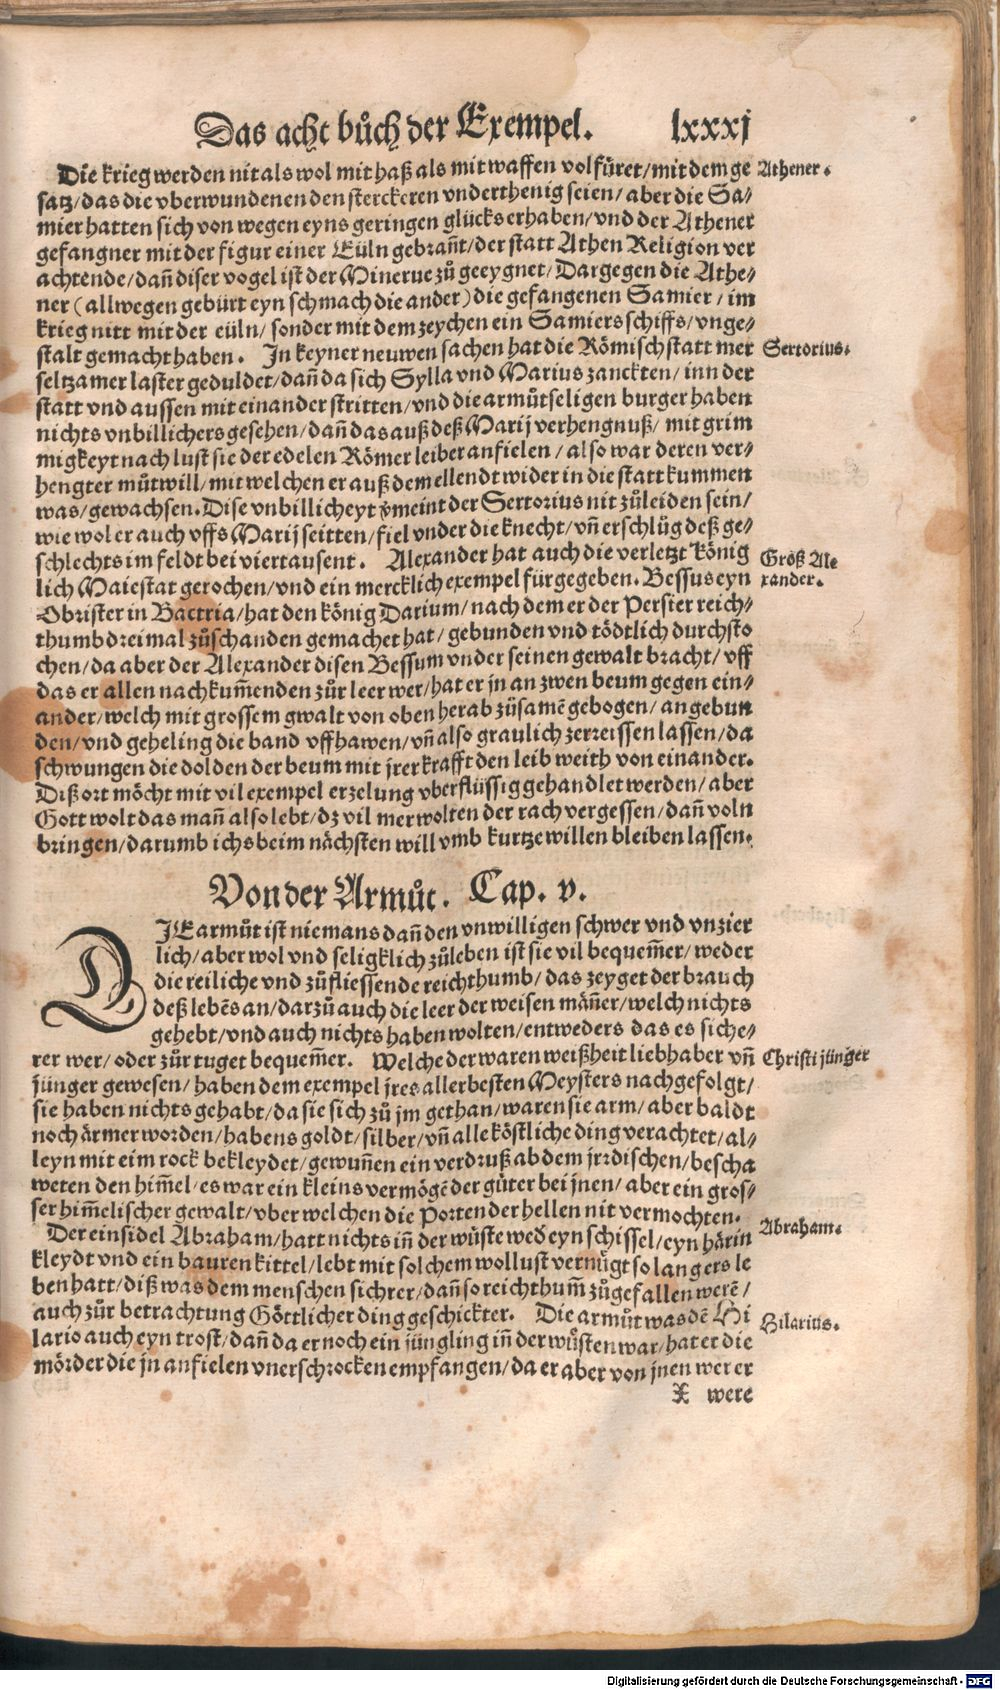 Das acht bůch der Exempel. lxxxj
Die krieg werden nit als wol mit haß als mit waffen volfüret/ mit dem ge Athener.
satz/ das die vberwundenen den sterckeren vnderthenig seien/ aber die Sa-
mier hatten sich von wegen eyns geringen glücks erhaben/ vnd der Athener
gefangner mit der figur einer Eüln gebrañt/ der statt Athen Religion ver
achtende/ dañ diser vogel ist der Minerue zů geeygnet/ Dargegen die Athe-
ner (allwegen gebürt eyn schmach die ander) die gefangenen Samier/ im
krieg nitt mit der eüln/ sonder mit dem zeychen ein Samiers schiffs/ vnge-
stalt gemacht haben. In keyner neuwen sachen hat die Römisch statt mer Sertorius.
seltzamer laster geduldet/ dañ da sich Sylla vnd Marius zanckten/ inn der
statt vnd aussen mit einander stritten/ vnd die armůtseligen burger haben
nichts vnbillichers gesehen/ dañ das auß deß Marij verhengnuß/ mit grim
migkeyt nach lust sie der edelen Römer leiber anfielen/ also war deren ver-
hengter můtwill/ mit welchen er auß dem ellendt wider in die statt kummen
was/ gewachsen. Dise vnbillicheyt v̈meint der Sertorius nit zůleiden sein/
wie wol er auch vffs Marij seitten/ fiel vnder die knecht/ vñ erschlůg deß ge-
schlechts im feldt bei viertausent. Alexander hat auch die verletzt König Groß Ale
lich Maiestat gerochen/ vnd ein mercklich exempel fürgegeben. Bessus eyn xander.
Obrister in Bactria/ hat den könig Darium/ nach dem er der Persier reich-
thumb drei mal zůschanden gemachet hat/ gebunden vnd tödtlich durchsto
chen/ da aber der Alexander disen Bessum vnder seinen gewalt bracht/ vff
das er allen nachkum̃enden zůr leer wer/ hat er jn an zwen beum gegen ein-
ander/ welch mit grossem gwalt von oben herab zůsamẽ gebogen/ angebun
den/ vnd geheling die band vffhawen/ vñ also graulich zerreissen lassen/ da
schwungen die dolden der beum mit jrer krafft den leib weith von einander.
Diß ort möcht mit vil exempel erzelung vberflüssig gehandlet werden/ aber
Gott wolt das mañ also lebt/ dz vil mer wolten der rach vergessen/ dañ voln
bringen/ darumb ichs beim nächsten will vmb kurtze willen bleiben lassen.
Von der Armůt. Cap. v.
DIE armůt ist niemans dañ den vnwilligen schwer vnd vnzier
lich/ aber wol vnd seligklich zůleben ist sie vil bequem̃er/ weder
die reiliche vnd zůfliessende reichthumb/ das zeyget der brauch
deß lebẽs an/ darzů auch die leer der weisen mäñer/ welch nichts
gehebt/ vnd auch nichts haben wolten/ entweders das es siche-
rer wer/ oder zůr tuget bequem̃er. Welche der waren weißheit liebhaber vñ Christi jünger
jünger gewesen/ haben dem exempel jres allerbesten Meysters nachgefolgt/
sie haben nichts gehabt/ da sie sich zů jm gethan/ waren sie arm/ aber baldt
noch ärmer worden/ habens goldt/ silber/ vñ alle köstliche ding verachtet/ al-
leyn mit eim rock bekleydet/ gewuñen ein verdruß ab dem jrrdischen/ bescha
weten den him̃el/ es war ein kleins vermögẽ der güter bei jnen/ aber ein gros-
ser him̃elischer gewalt/ vber welchen die Porten der hellen nit vermochten.
Der einsidel Abraham/ hatt nichts iñ der wüste wed̕ eyn schissel/ eyn härin Abraham.
kleydt vnd ein bauren kittel/ lebt mit solchem wollust vernügt so lang ers le
ben hatt/ diß was dem menschen sichrer/ dañ so reichthum̃ zůgefallen werẽ/
auch zůr betrachtung Göttlicher ding geschickter. Die armůt was dẽ Hi Hilarius.
lario auch eyn trost/ dañ da er noch ein jüngling iñ der wůsten war/ hat er die
mörder die jn anfielen vnerschrocken empfangen/ da er aber von jnen wer er
X were
Digitalisierung gefördert durch die Deutsche Forschungsgemeinschaft - DFG